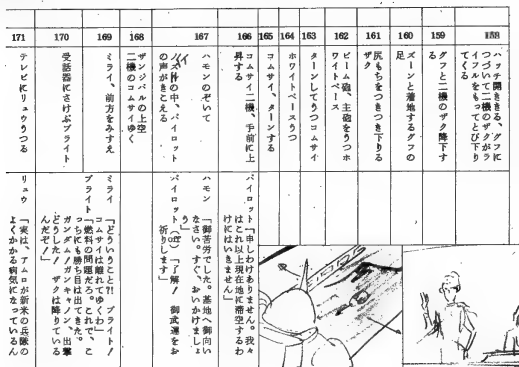 158
ハッチ開ききる、グフに
つづいて二機のザクがラ
イフルをもってとび下り
てくる
159
グフと二機のザク降下す
る
160
ズーンと着地するグフの
足
161
尻もちをつきつき下りる
ザク
162
ビーム砲、主砲をうつホ
ワイトベース
163
ターンしてうつコムサイ
164
ホワイトベースうつ
165
コムサイ、ターンする
166
コムサイ二機、手前に上
昇する
パイロット「申しわけありません。我々
はこれ以上現在地に滞空するわ
けにはいきません」
167
ハモンのぞいて
ノイズの中、パイロット
の声がきこえる
ハモン
「御苦労でした。基地へ御向い
なさい。すぐ、おいかけましょ
う」
パイロット
「了解! 御武運をお
祈りします」
168
ザンジバルの上空
二機のコムサイゆく
169
ミライ、前方をみすえ
ミライ
「どういうこと?! ブライト!
コムサイは離れてゆくわ」
170
受話器にさけぶブライト
ブライト
「燃料の問題だろ。これで、こ
っちにも勝ち目は出てきた。
ガンダム!ガンキャノン、出撃
どうした! ザクは降りている
んだぞ!」
171
テレビにリュウうつる
リュウ
「実は、アムロが新米の兵隊の
よくかかる病気になっているん